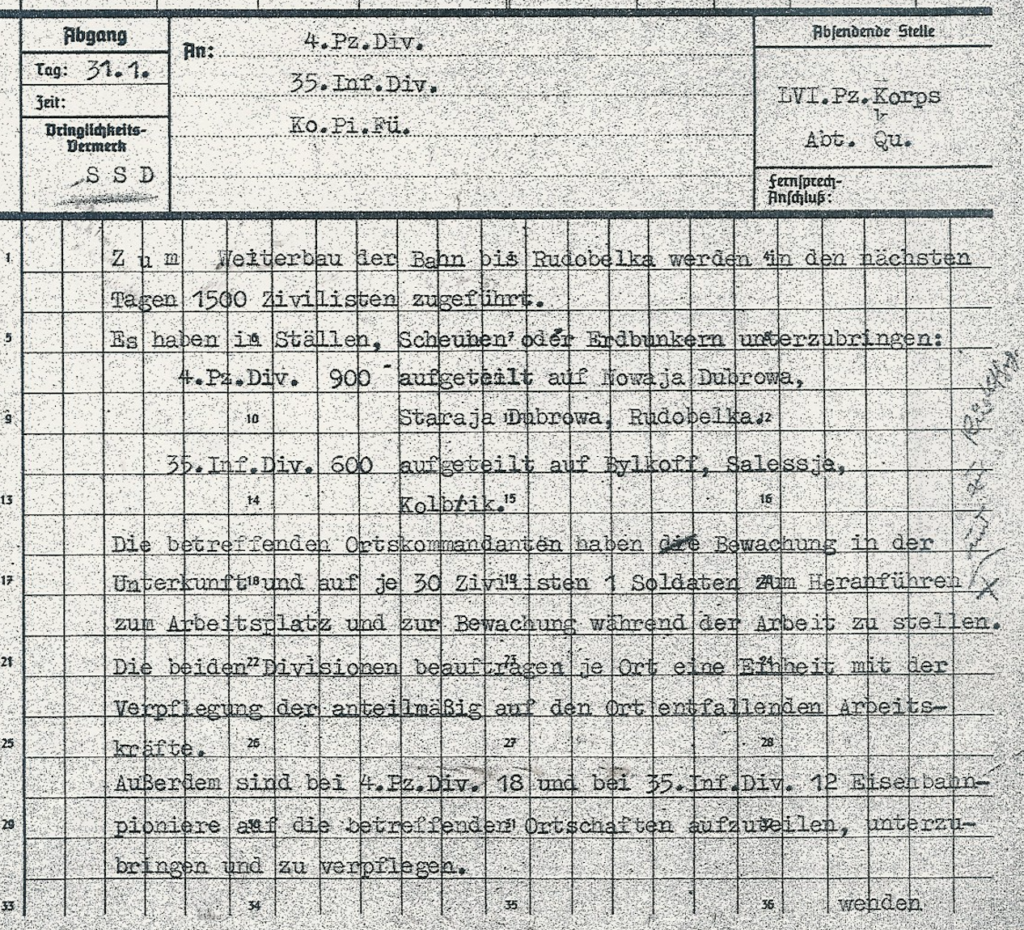 Abgang
Tag: 31.1.
Zeit:
Dringlichkeits-
Vermerk
S S D
An:
4.Pz.Div.
35.Inf.Div.
Ko.Pi.Fü.
Absendende Stelle
LVI.Pz.Korps
k
Abt. Qu.
Fernsprech-
Anschluß:
1 Zum Weiterbau der Bahn bis Rudobelka werden in den nächsten
Tagen 1500 Zivilisten zugeführt.
5 Es haben in Ställen, Scheuhen oder Erdbunkern unterzubringen:
4.Pz.Div. 900 aufgeteilt auf Nowaja Dubrowa,
9 10 Staraja Dubrowa, Rudobelka. 12
35.Inf.Div. 600 aufgeteilt auf Bylkoff, Salessje,
13 14 Kolbrik. 15 16
Die betreffenden Ortskommandanten haben die Bewachung in der
17 Unterkunft 18 und auf je 30 Zivilisten 19 1 Soldaten zum Heranführen
zum Arbeitsplatz und zur Bewachung während der Arbeit zu stellen.
21 Die beiden 22 Divisionen beauftragen 23 je Ort eine Einheit 24 mit der
Verpflegung der anteilmäßig auf den Ort entfallenden Arbeits-
25 kräfte. 26 27 28
Außerdem sind bei 4.Pz.Div. 18 und bei 35.Inf.Div. 12 Eisenbahn-
29 pioniere auf die betreffenden 31 Ortschaften aufzuteilen, unterzu-
bringen und zu verpflegen.
33 34 35 36 wenden